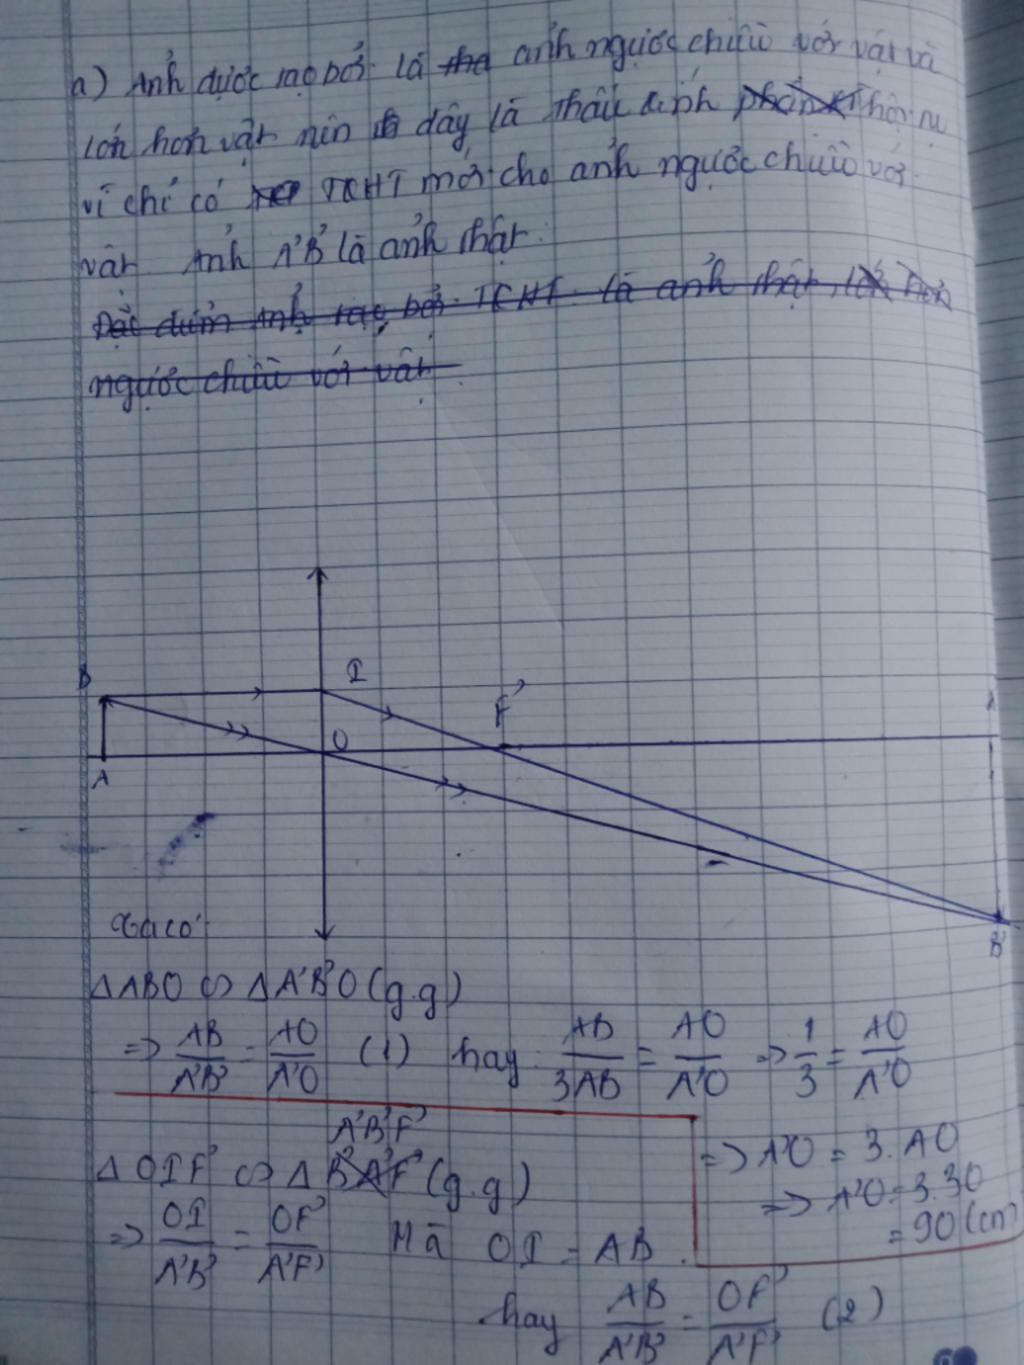 a) Ảnh được tạo bởi là ảnh ngược chiều với vật và
lớn hơn vật nên đây là thấu kính hội tụ
vì chỉ có TKHT mới cho ảnh ngược chiều với
vật Ảnh A'B' là ảnh thật.
Đặc điểm ảnh tạo bởi TKHT là ảnh thật, lớn hơn
ngược chiều với vật
B I F'
O
A
B'
Ta có:
ΔABO ∽ ΔA'B'O (g.g)
=> AB/A'B' = AO/A'O (1) hay AB/3AB = AO/A'O => 1/3 = AO/A'O
=> A'O = 3.AO
=> A'O = 3.30
= 90 (cm)
A'B'F'
ΔOIF' ∽ Δ B'A'F' (g.g)
=> OI/A'B' = OF'/A'F' Mà OI = AB.
hay AB/A'B' = OF'/A'F' (2)